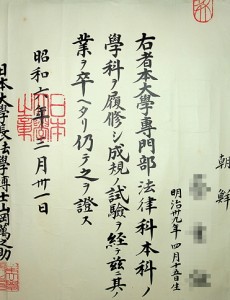 朝鮮
明治卅九年四月十五日生
右者本大學專門部法律科本科ノ
學科ヲ履修シ成規ノ試驗ヲ経テ茲ニ其ノ
業ヲ卒ヘタリ仍テ之ヲ證ス
昭和六年三月卅一日
日本大學長法學博士山岡萬之助